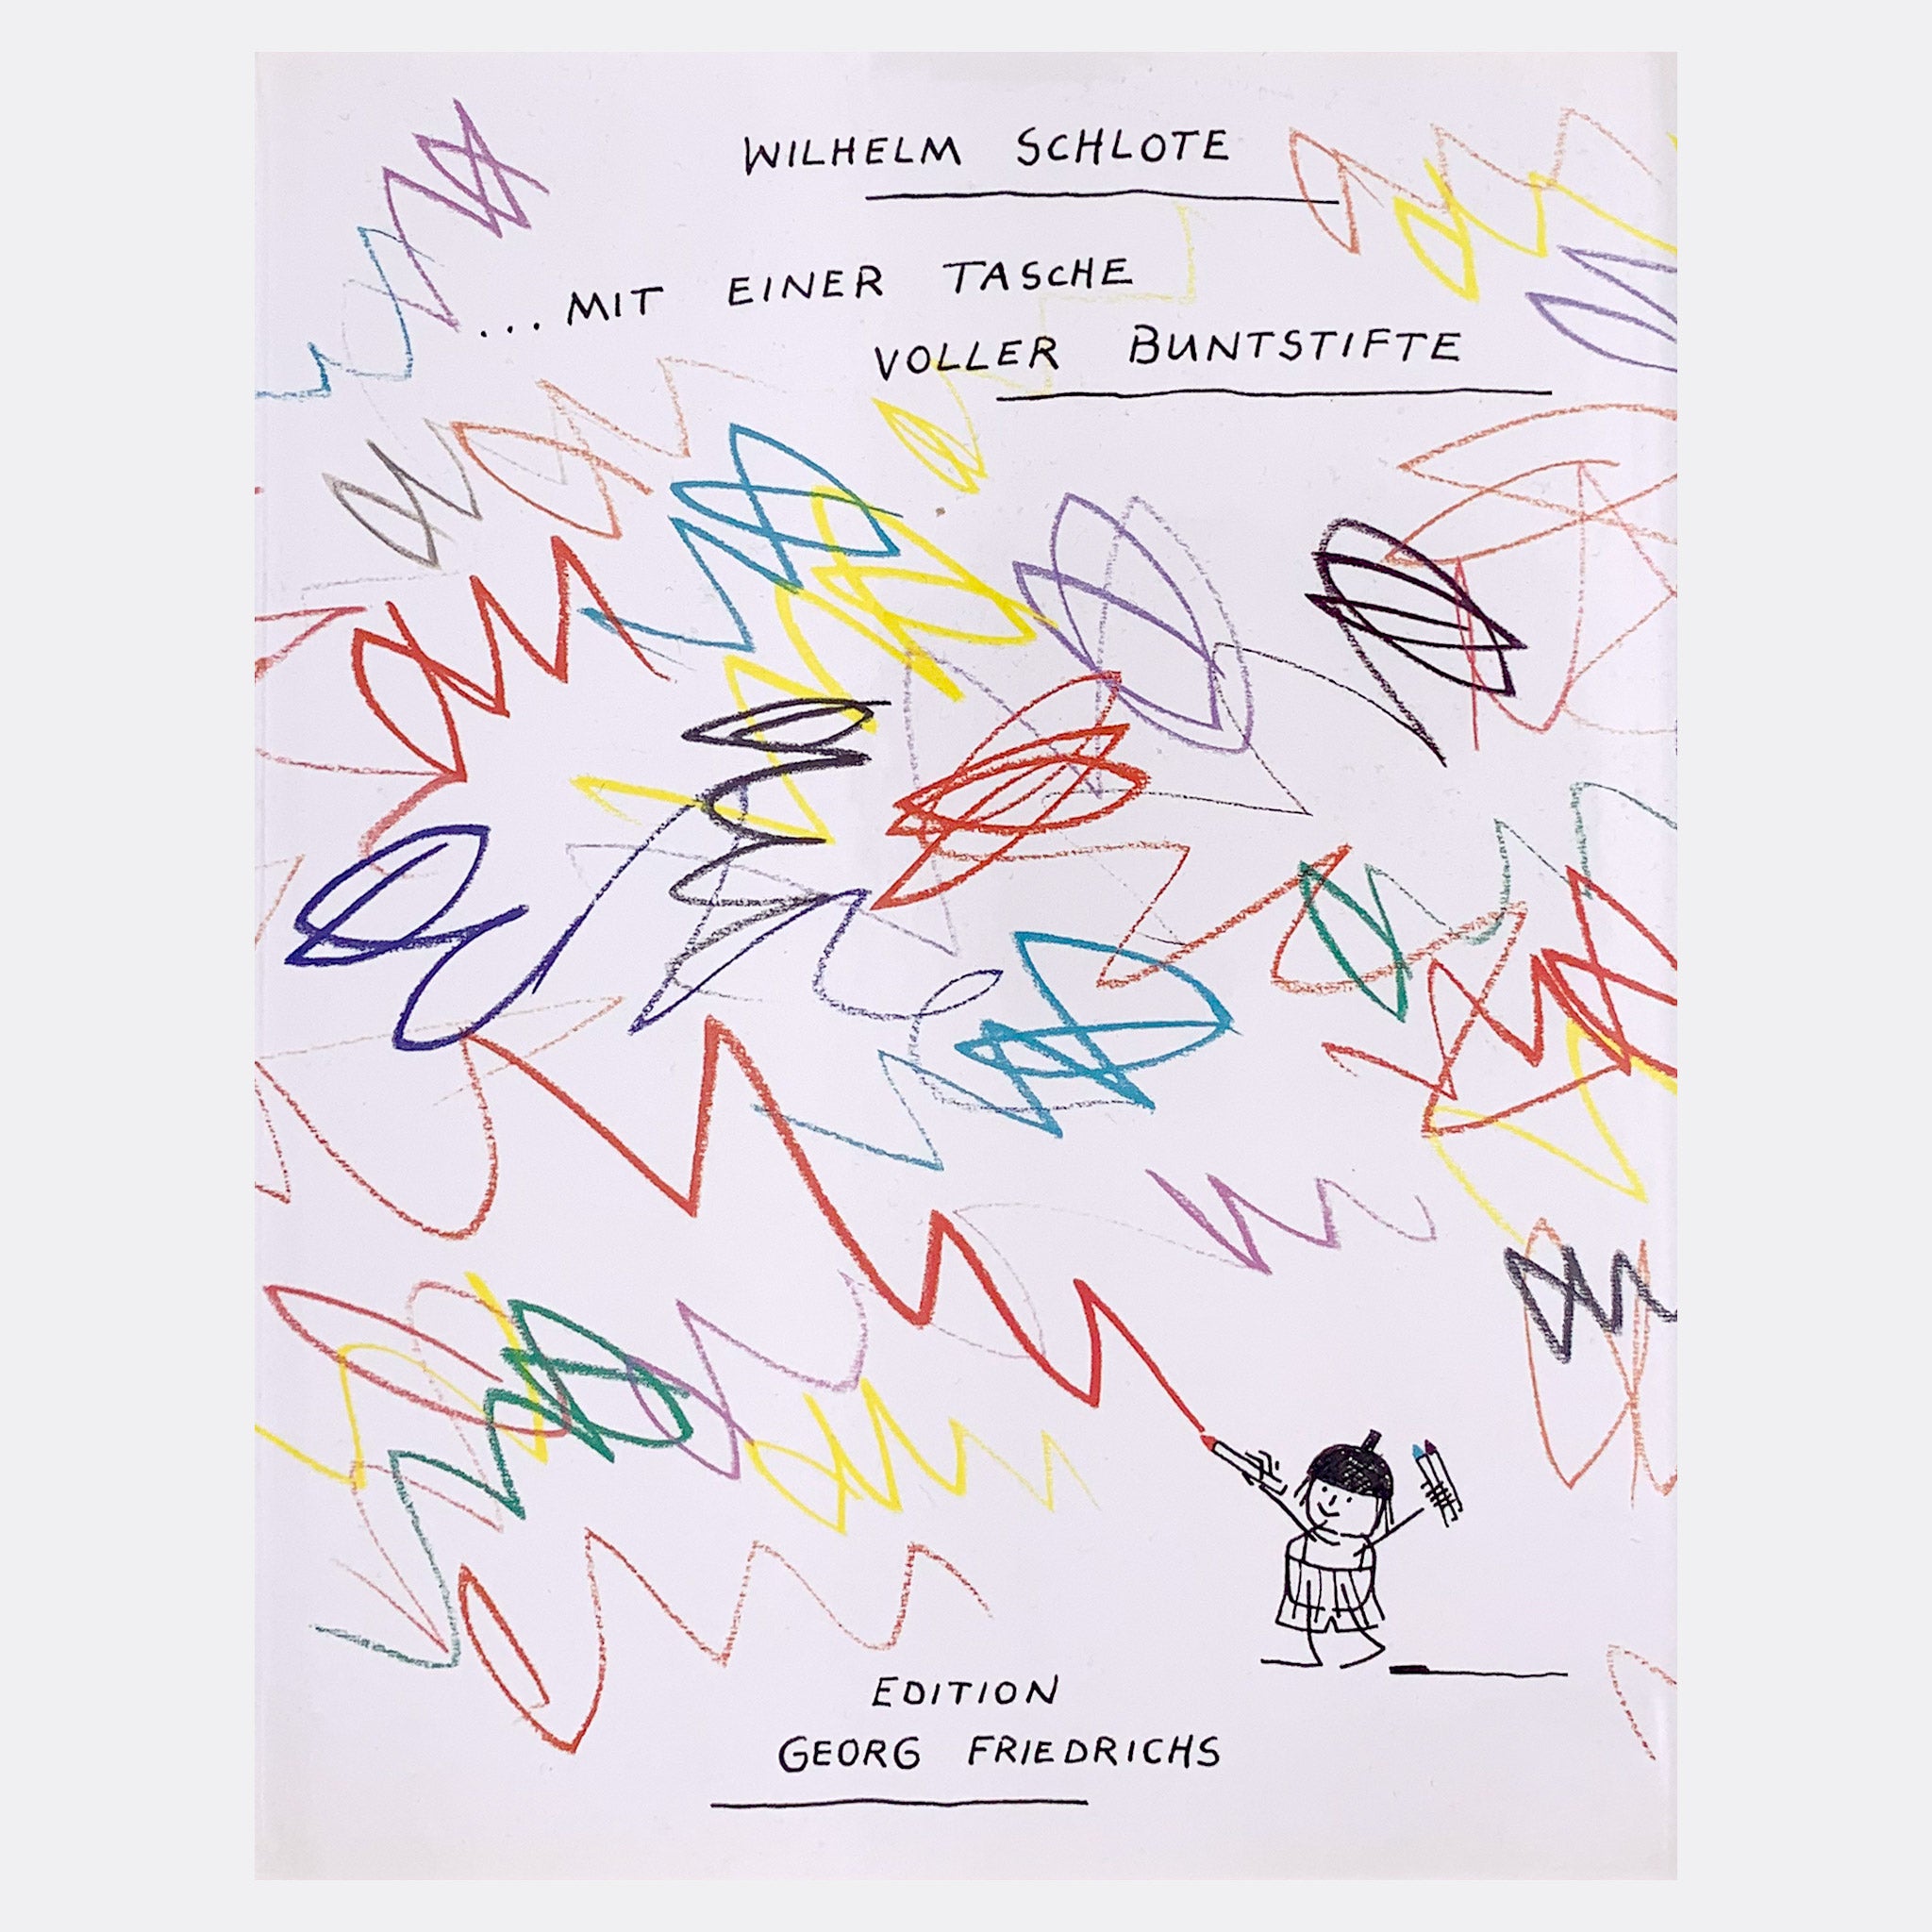 WILHELM SCHLOTE
...MIT EINER TASCHE
VOLLER BUNTSTIFTE
EDITION
GEORG FRIEDRICHS